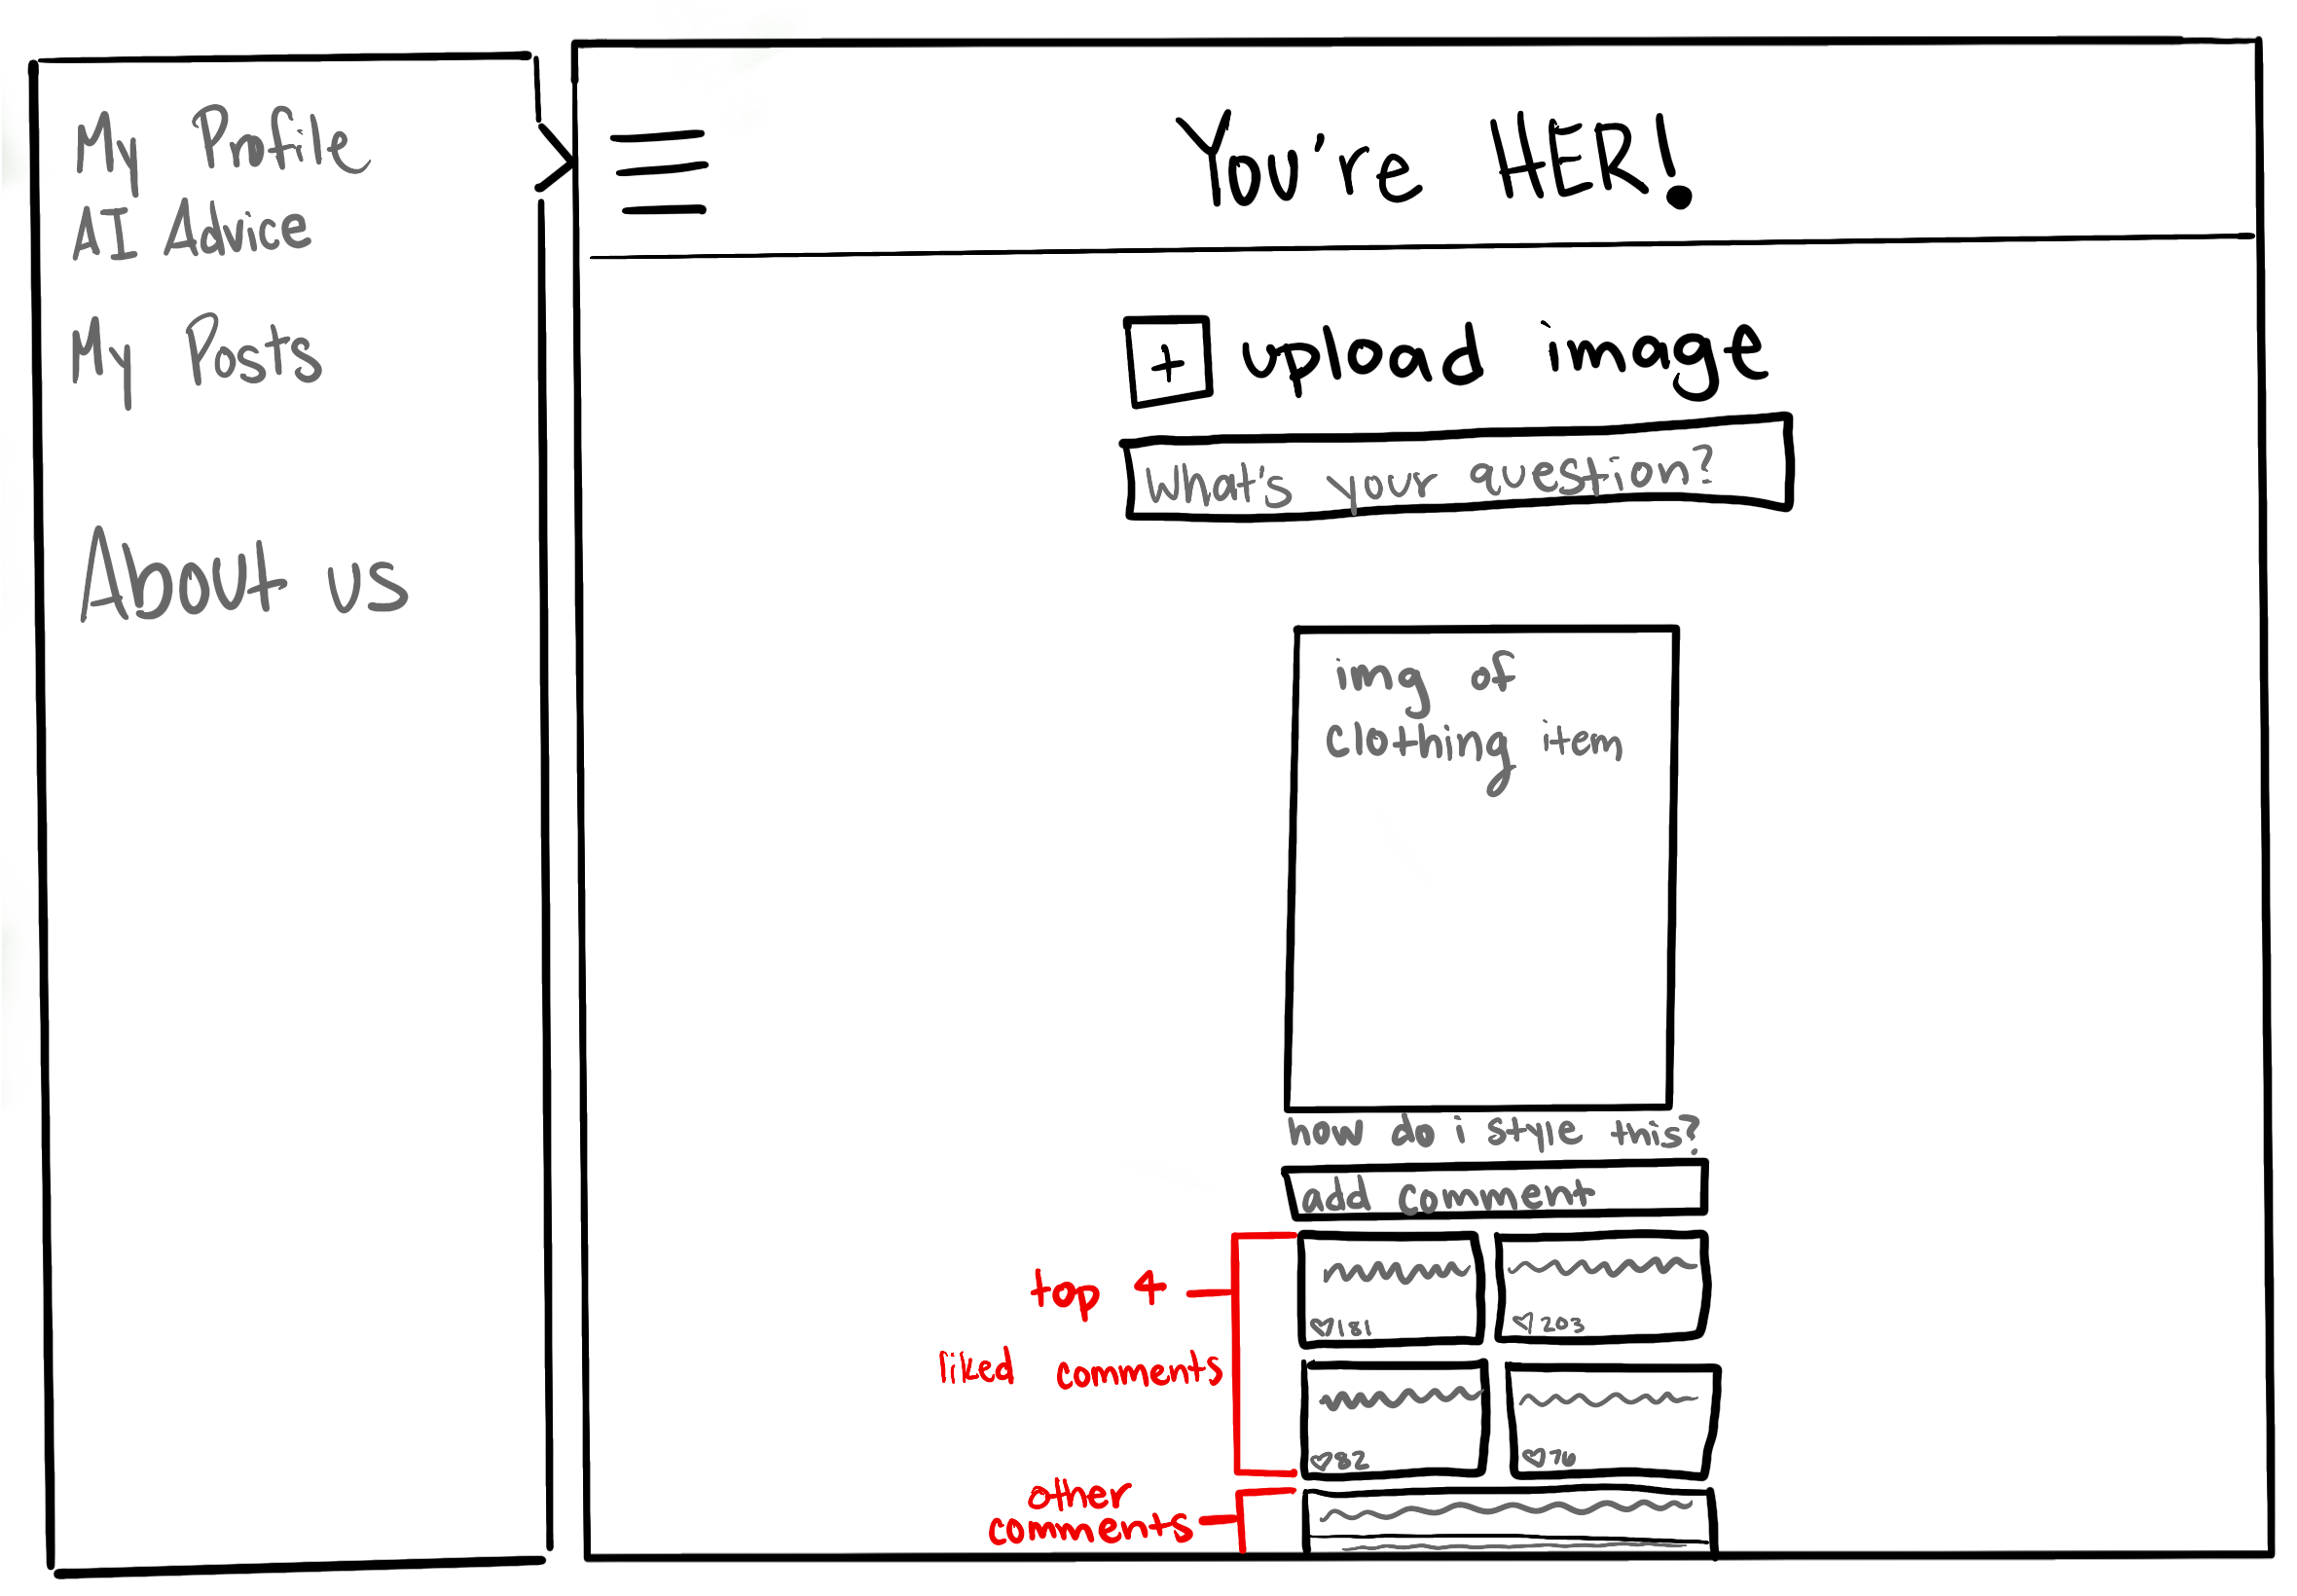 My Profile
AI Advice
My Posts
About us
You're HER!
+ upload image
What's your question?
img of
clothing item
how do i style this?
add comment
top 4
liked comments
♡181
♡203
♡82
♡76
other
comments